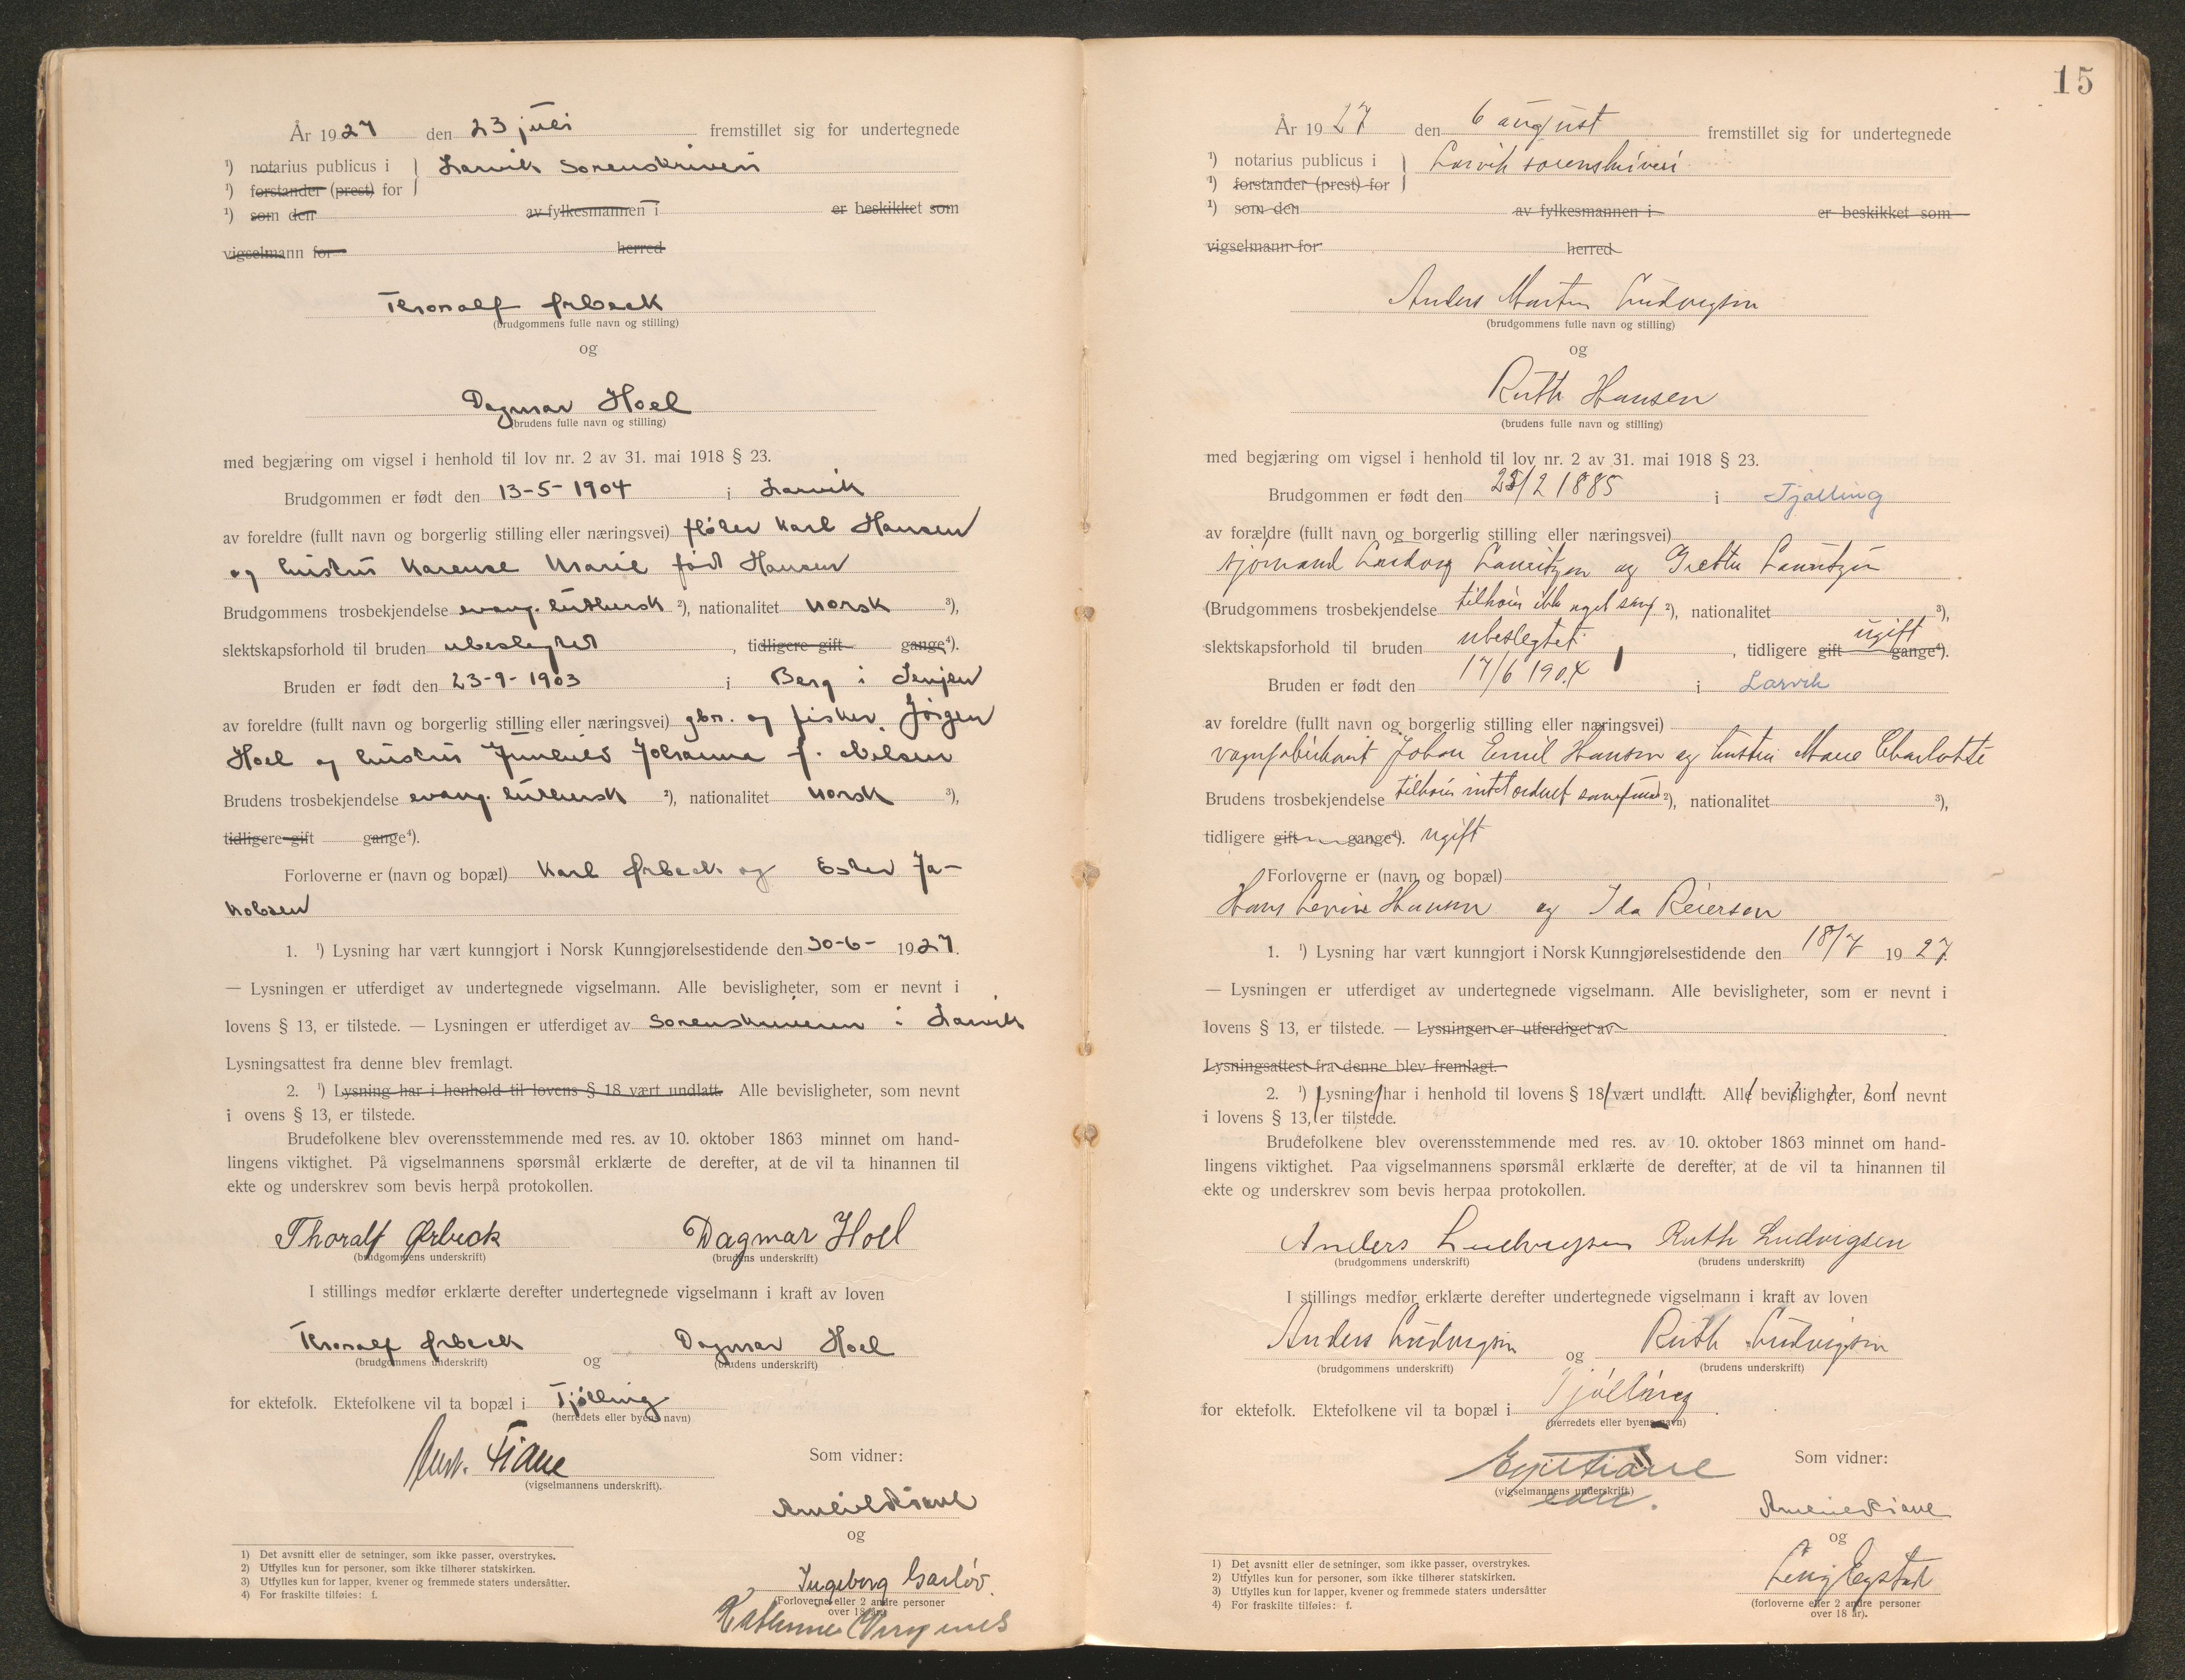 År 1927 den 23 juli fremstillet sig for undertegnede
¹) notarius publicus i } Larvik Sorenskriveri
¹) forstander (prest) for
¹) som den av fylkesmannen i er beskikket som
vigselmann for herred
Thoralf Ørbeck
(brudgommens fulle navn og stilling)
og
Dagmar Hoel
(brudens fulle navn og stilling)
med begjæring om vigsel i henhold til lov nr. 2 av 31. mai 1918 § 23.
Brudgommen er født den 13-5-1904 i Larvik
av foreldre (fullt navn og borgerlig stilling eller næringsvei) fløter Karl Hansen
og hustru Karense Marie født Hansen
Brudgommens trosbekjendelse evang. luthersk ²), nationalitet norsk ³),
slektskapsforhold til bruden ubeslegtet , tidligere gift gange⁴).
Bruden er født den 23-9-1903 i Berg i Senjen
av foreldre (fullt navn og borgerlig stilling eller næringsvei) gbr. og fisker Jørgen
Hoel og hustru Johanna f. Nilsen
Brudens trosbekjendelse evang. luthersk ²), nationalitet norsk ³),
tidligere gift gange⁴).
Forloverne er (navn og bopæl) Karl Ørbeck og Ester Ja-
kobsen
1. ¹) Lysning har vært kunngjort i Norsk Kunngjørelsestidende den 30-6- 1927.
— Lysningen er utferdiget av undertegnede vigselmann. Alle bevisligheter, som er nevnt i
lovens § 13, er tilstede. — Lysningen er utferdiget av Sorenskriveren i Larvik
Lysningsattest fra denne blev fremlagt.
2. ¹) Lysning har i henhold til lovens § 18 vært undlatt. Alle bevisligheter, som nevnt
i ovens § 13, er tilstede.
Brudefolkene blev overensstemmende med res. av 10. oktober 1863 minnet om hand-
lingens viktighet. På vigselmannens spørsmål erklærte de derefter, at de vil ta hinannen til
ekte og underskrev som bevis herpå protokollen.
Thoralf Ørbeck Dagmar Hoel
(brudgommens underskrift) (brudens underskrift)
I stillings medfør erklærte derefter undertegnede vigselmann i kraft av loven
Thoralf Ørbeck og Dagmar Hoel
(brudgommens underskrift) (brudens underskrift)
for ektefolk. Ektefolkene vil ta bopæl i Tjølling
(herredets eller byens navn)
Tiane
(vigselmannens underskrift).
Som vidner:
og
Ingeborg
(Forloverne eller 2 andre personer
over 18 år).
1) Det avsnitt eller de setninger, som ikke passer, overstrykes.
2) Utfylles kun for personer, som ikke tilhører statskirken.
3) Utfylles kun for lapper, kvener og fremmede staters undersåtter.
4) For fraskilte tilføies: f.
15
År 1927 den 6 august fremstillet sig for undertegnede
¹) notarius publicus i } Larvik sorenskriveri
¹) forstander (prest) for
¹) som den av fylkesmannen i er beskikket som
vigselmann for herred
Anders Martin Ludvigsen
(brudgommens fulle navn og stilling)
og
Ruth Hansen
(brudens fulle navn og stilling)
med begjæring om vigsel i henhold til lov nr. 2 av 31. mai 1918 § 23.
Brudgommen er født den /2 1885 i Tjølling
av forældre (fullt navn og borgerlig stilling eller næringsvei)
sjømand Ludvig Lauritzen og Grethe Lauritzen
(Brudgommens trosbekjendelse tilhører ikke noget samf ²), nationalitet ³),
slektskapsforhold til bruden ubeslegtet , tidligere gift gange⁴). ugift
Bruden er født den 17/6 1904 i Larvik
av foreldre (fullt navn og borgerlig stilling eller næringsvei)
vognfabrikant Johan Emil Hansen og hustru Marie Charlotte
Brudens trosbekjendelse tilhører intet ordnet samfund ²), nationalitet ³),
tidligere gift gange⁴). ugift
Forloverne er (navn og bopæl)
Hans Hansen og Ida Reiersen
1. ¹) Lysning har vært kunngjort i Norsk Kunngjørelsestidende den 18/7 1927.
— Lysningen er utferdiget av undertegnede vigselmann. Alle bevisligheter, som er nevnt i
lovens § 13, er tilstede. — Lysningen er utferdiget av
Lysningsattest fra denne blev fremlagt.
2. ¹) Lysning har i henhold til lovens § 18 vært undlatt. Alle bevisligheter, som nevnt
i lovens § 13, er tilstede.
Brudefolkene blev overensstemmende med res. av 10. oktober 1863 minnet om hand-
lingens viktighet. Paa vigselmannens spørsmål erklærte de derefter, at de vil ta hinannen til
ekte og underskrev som bevis herpaa protokollen.
Anders Ludvigsen Ruth Ludvigsen
(brudgommens underskrift) (brudens underskrift)
I stillings medfør erklærte derefter undertegnede vigselmann i kraft av loven
Anders Ludvigsen og Ruth Ludvigsen
(brudgommens underskrift) (brudens underskrift)
for ektefolk. Ektefolkene vil ta bopæl i Tjølling
(herredets eller byens navn)
(vigselmannens underskrift.)
Som vidner:
og
(forloverne eller 2 andre personer
over 18 år).
1) Det avsnitt eller de setninger, som ikke passer, overstrykes.
2) Utfylles kun for personer, som ikke tilhører statskirken.
3) Utfylles kun for lapper, kvener og fremmede staters undersåtter
4) For fraskilte tilføies: f.